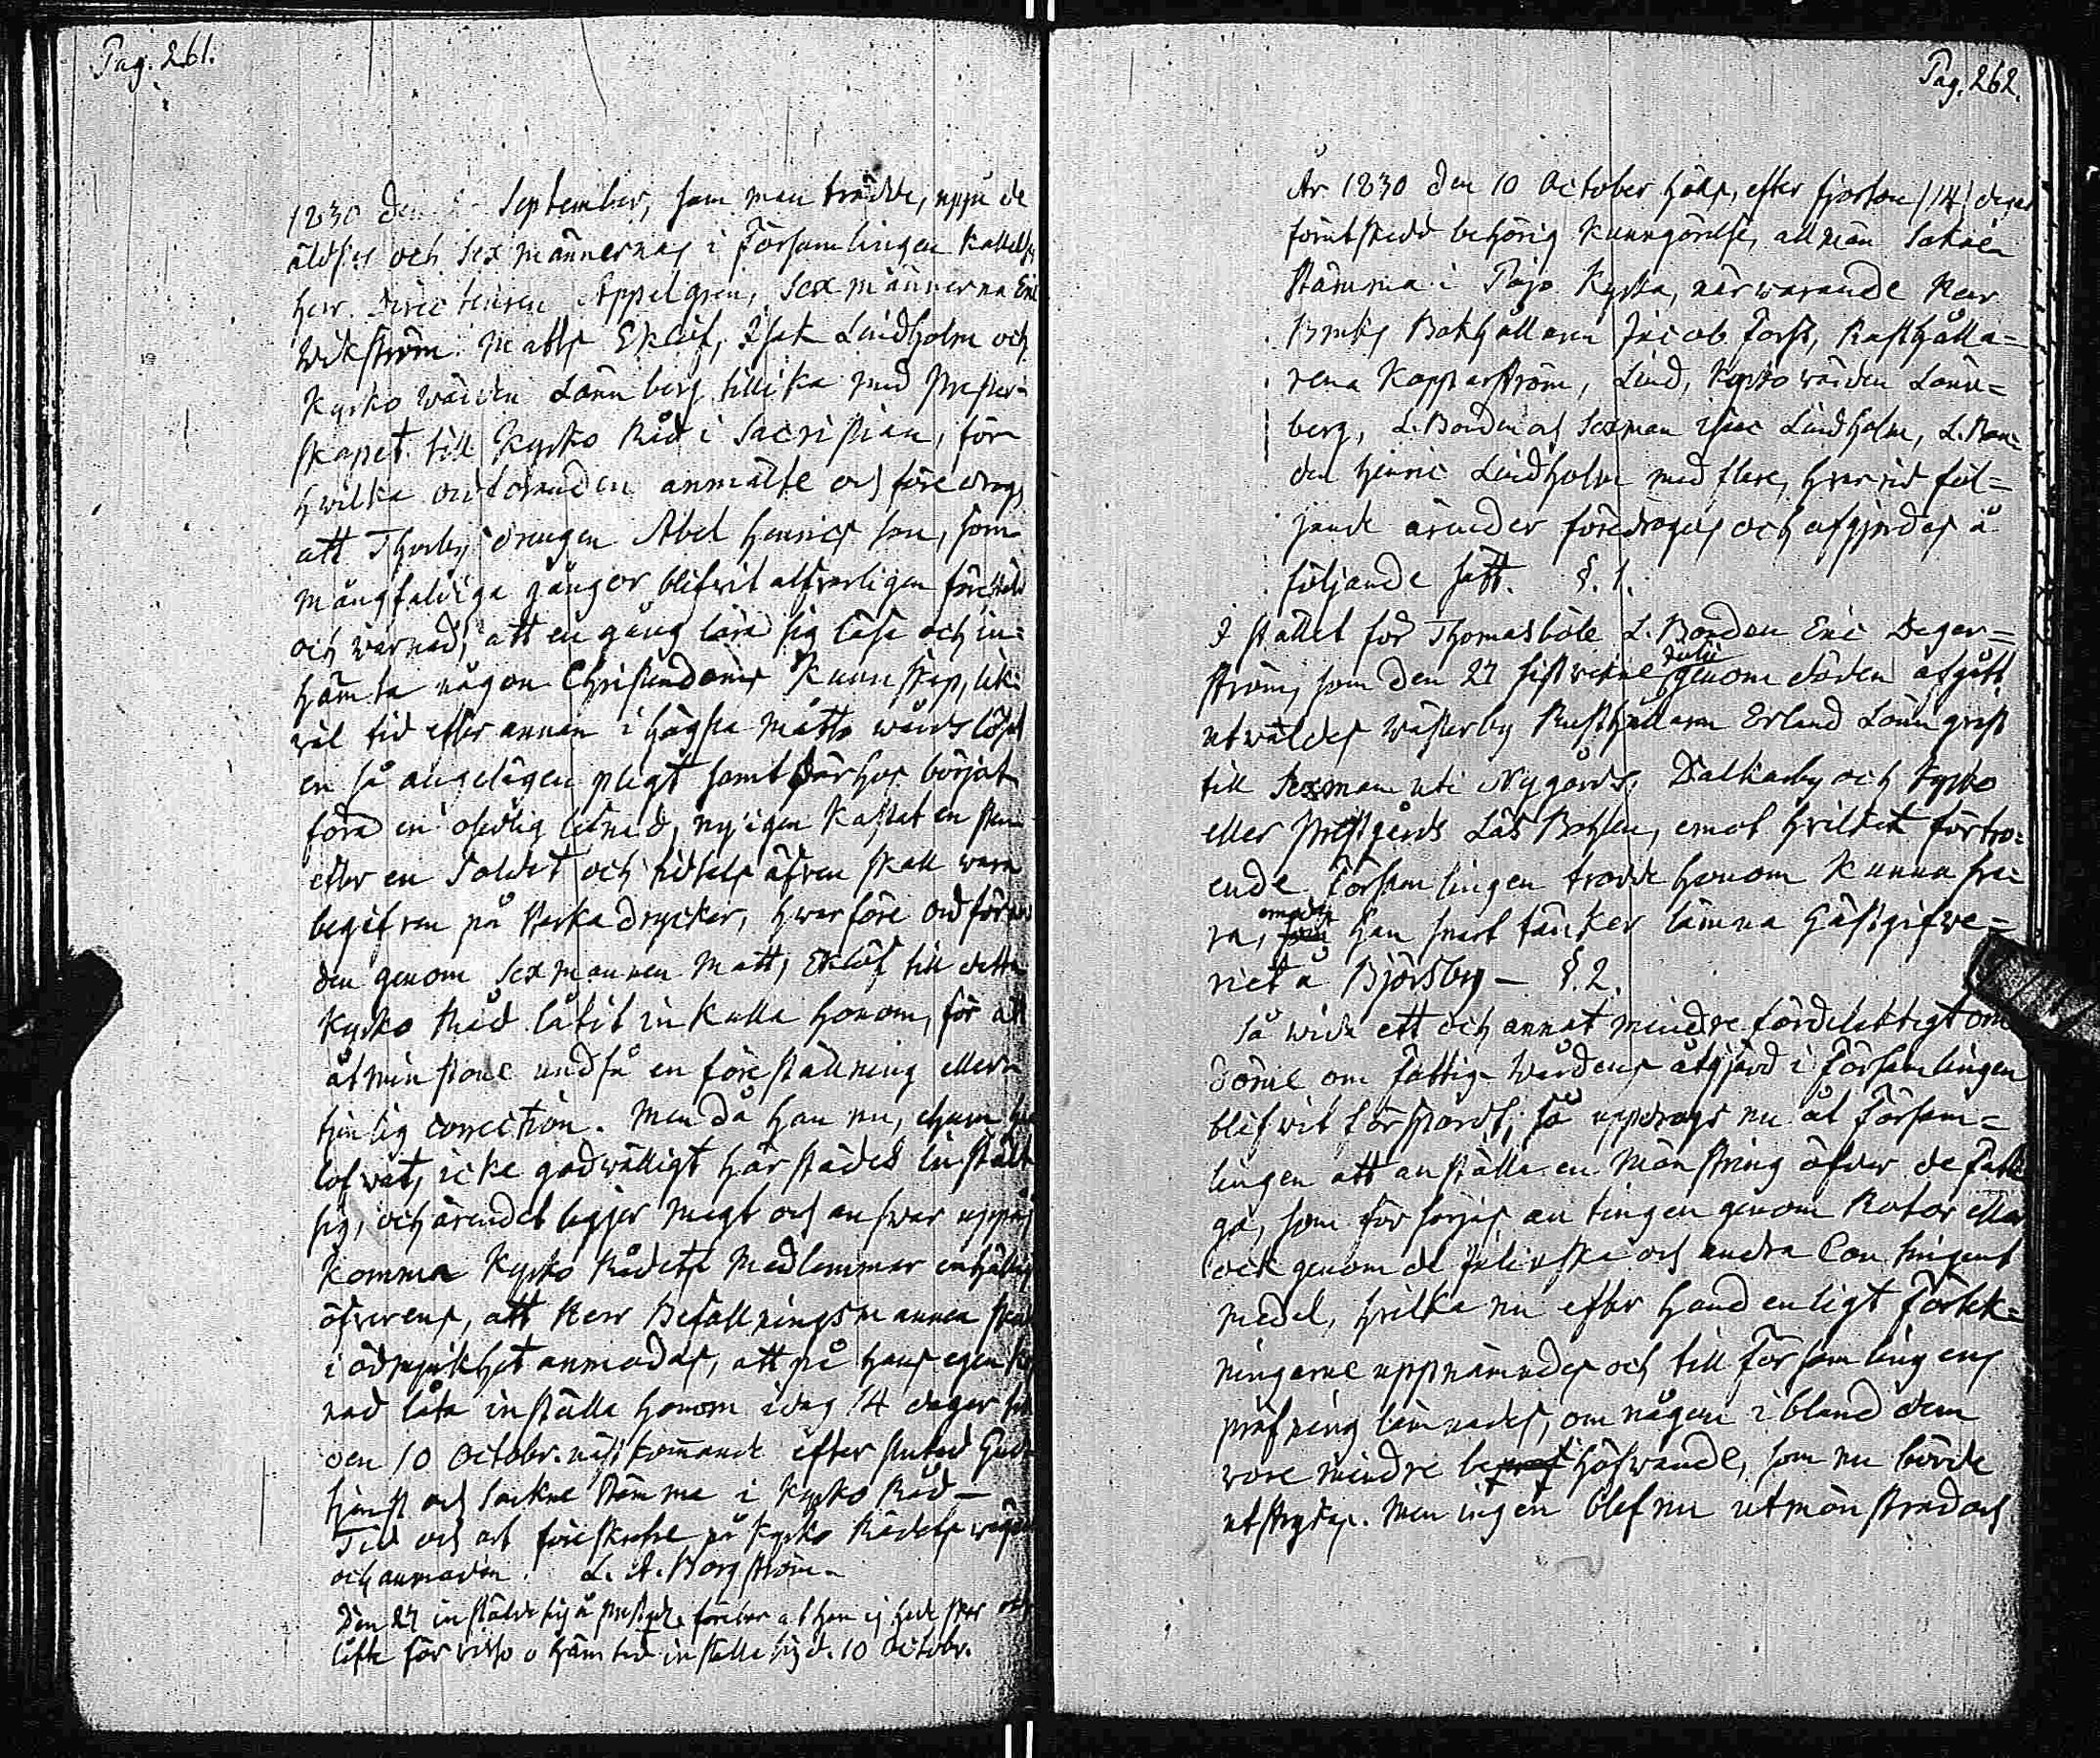 Pag. 261.
1830 den September, sam man trädde, uppå de
äldstes och Sexmännernas i Församlingen kallelse
Herr Directeuren Appelgren, Sexmännerna Eric
Wikström Matts Eklöf, Isak Lindholm och
Kyrko Wärden Lönnberg tillika med Prester-
skapet till Kyrko Råd i Sacristian, för
hvilka ordföranden anmälte och föredrogs
att Thorby drengen Abel Henrics son, som
mångfaldiga gånger blifvit alfvarligen förestäld
och varnad, att en gång lära sig läsa och in-
hämta någon Christendoms kunskap, lik-
väl tid efter annan i högsta måtto wårdslösat
en så angelägen pligt samt därhos börjat
föra en osedlig lefnad, nyligen kastat en sten
efter en Soldat och tidtals äfven skall wara
begifven på starka drycker, hvarföre ordföran-
den genom Sexmannen Matts Eklöf till detta
Kyrko Råd låtit inkalla honom, för att
åtminstone undfå en föreställning eller
tjenlig correction. Men då han nu, ehuru han
lofvat, icke godwilligt härstädes instält
sig, och ärendet ligger magt och answar uppå,
komma Kyrko Rådets Medlemmar enhälligt
öfverens, att Herr Befallningsmannen skall
i ödmjukhet anmodas, att på hans egen kost-
nad låta inställa honom idag 14 dagar till
den 10 Octobr. nästkommande efter slutad Gud-
tjenst och Sockne Stämma i Kyrko Råd —
Tid och ort föreskrefne på Kyrko Rådets wägnar
och anmodan. L. A. Borgström.
Den 27 instälde sig å Prestgd. att han ej hade
löfte för inställa sig d. 10 Octobr.
Pag. 262.
År 1830 den 10 October hölls, efter fjorton /14/ dagar
förutskedd behörig kunngörelse, allmän Sockne
Stämma i Pojo Kyrka, närwarande Herr
Bruks Bokhållaren Jacob Forss, Rusthålla-
rena Kopparström, Lind, Kyrkowärden Lönn-
berg, L. Bonden och Sexman Isac Lindholm, L. Bon-
den Henric Lindholm med flere, hvarvid föl-
jande ärender föredrogos och afgjordes å
följande sätt. §. 1.
I stället för Thomasböle L. Bonden Eric Dager-
ström, som den 27 sistvekne Julii genom döden afgått
utwaldes Wästerby Rusthållaren Erland Lönnqvist
till Sexman uti Nygårds, Dalkarby och Kyrko
eller Prestgårds Läs Bohlen, emot hvilket förtro-
ende Församlingen trodde honom kunna sva-
ra, emedan han snart tänker lämna Gästgifve-
riet å Björsby — §. 2.
Så wida ett och annat mindre fördelaktigt om-
döme om Fattig Wårdens åtgjärd i Församlingen
blifvit försport; så uppdrogs nu åt Församl-
lingen att anställa en mönstring öfver de fatti-
ga, som försörjas antingen genom Rotar eller
ock genom de Julinska och andra Contingent
medel, hvilka nu efter hand enligt Förtek-
ningarne uppnämndes och till Församlingens
pröfning lämnades, om någon ibland dem
vore mindre behöfwande, som nu borde
utstrykas. Men ingen blef nu utmönstrad och